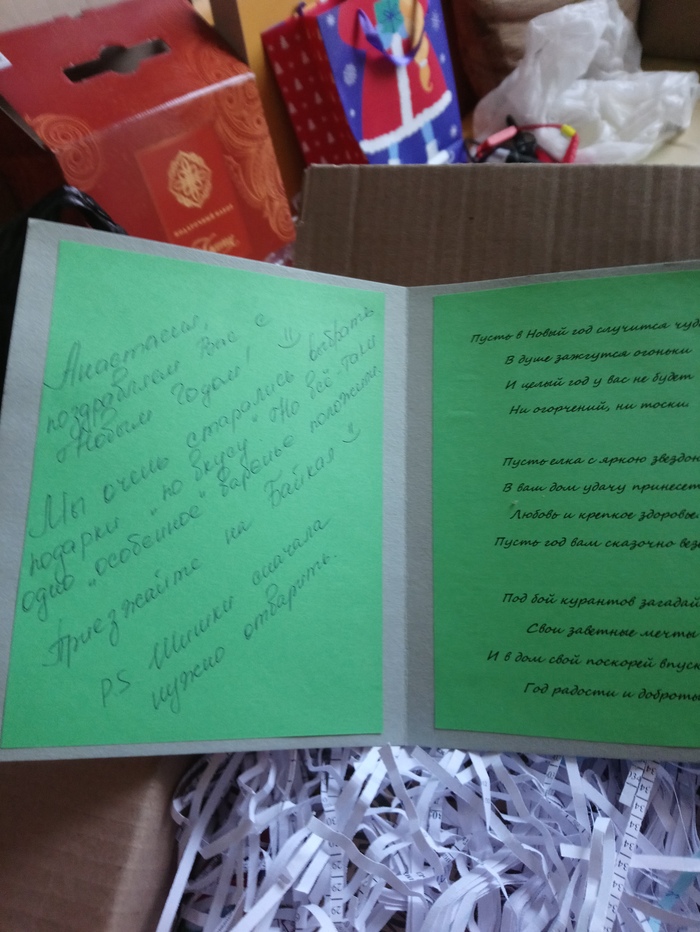 Анастасия,
поздравляем Вас с
Новым Годом!
Мы очень старались выбрать
подарки "по вкусу". Но всё-таки
одно "особенное" варенье положили.
Приезжайте на Байкал
P.S Шишки сначала
нужно отварить.
Пусть в Новый год случится чуд
В душе зажгутся огоньки
И целый год у вас не будет
Ни огорчений, ни тоски
Пусть елка с яркою звездой
В ваш дом удачу принесет
Любовь и крепкое здоровье
Пусть год вам сказочно вез
Под бой курантов загадай
Свои заветные мечты
И в дом свой поскорей впус
Год радости и доброты